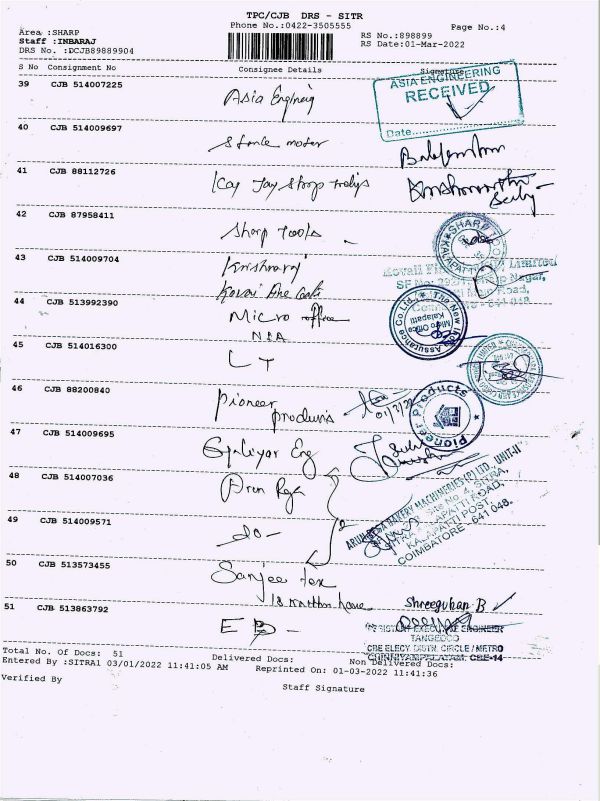 TPC/CJB DRS - SITR
Phone No.:0422-3505555
Page No.:4
Area :SHARP
Staff :INBARAJ
DRS No. :DCJB89889904
RS No.:898899
RS Date:01-Mar-2022
S No Consignment No Consignee Details Signature
39 CJB 514007225
Asia Engineering
ASIA ENGINEERING
RECEIVED
Date
40 CJB 514009697
motor
41 CJB 88112726
Kay Jay Sharp
42 CJB 87958411
Sharp Tools
SHARP TOOLS
KALAPATTI
43 CJB 514009704
Krishnaraj
Kovai
Limited
Nagar,
Road,
44 CJB 513992390
Micro office
NIA
The New India Assurance Co Ltd.
Micro Office
Kalapatti
45 CJB 514016300
LT
46 CJB 88200840
Pioneer
products
01/3/22
Pioneer Products
47 CJB 514009695
Eng
48 CJB 514007036
Arun
BAKERY MACHINERIES (P) LTD., UNIT-II
Site No 4, SITRA,
KALAPATTI ROAD,
KALAPATTI POST,
COIMBATORE - 641 048.
49 CJB 514009571
do-
50 CJB 513573455
Sanjee tex
18
Shreeguhan B
51 CJB 513863792
EB -
ASSISTANT EXECUTIVE ENGINEER
TANGEDCO
CBE ELECY. DISTN. CIRCLE / METRO
CBE-14
Total No. of Docs: 51
Delivered Docs:
Non Delivered Docs:
Entered By :SITRA1 03/01/2022 11:41:05 AM
Reprinted On: 01-03-2022 11:41:36
Verified By
Staff Signature